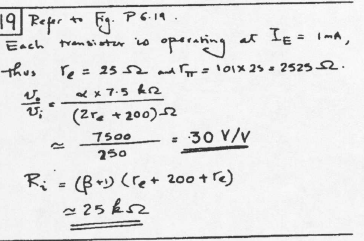 19 Refer to Fig. P 6.19.
Each transistor is operating at I_E = 1mA,
thus r_e = 25 Ω and r_π = 101 x 25 = 2525 Ω.
v_o/v_i = α x 7.5 kΩ / (2r_e + 200) Ω
≃ 7500 / 250 = 30 V/V
R_i = (β+1) (r_e + 200 + r_e)
≃ 25 kΩ